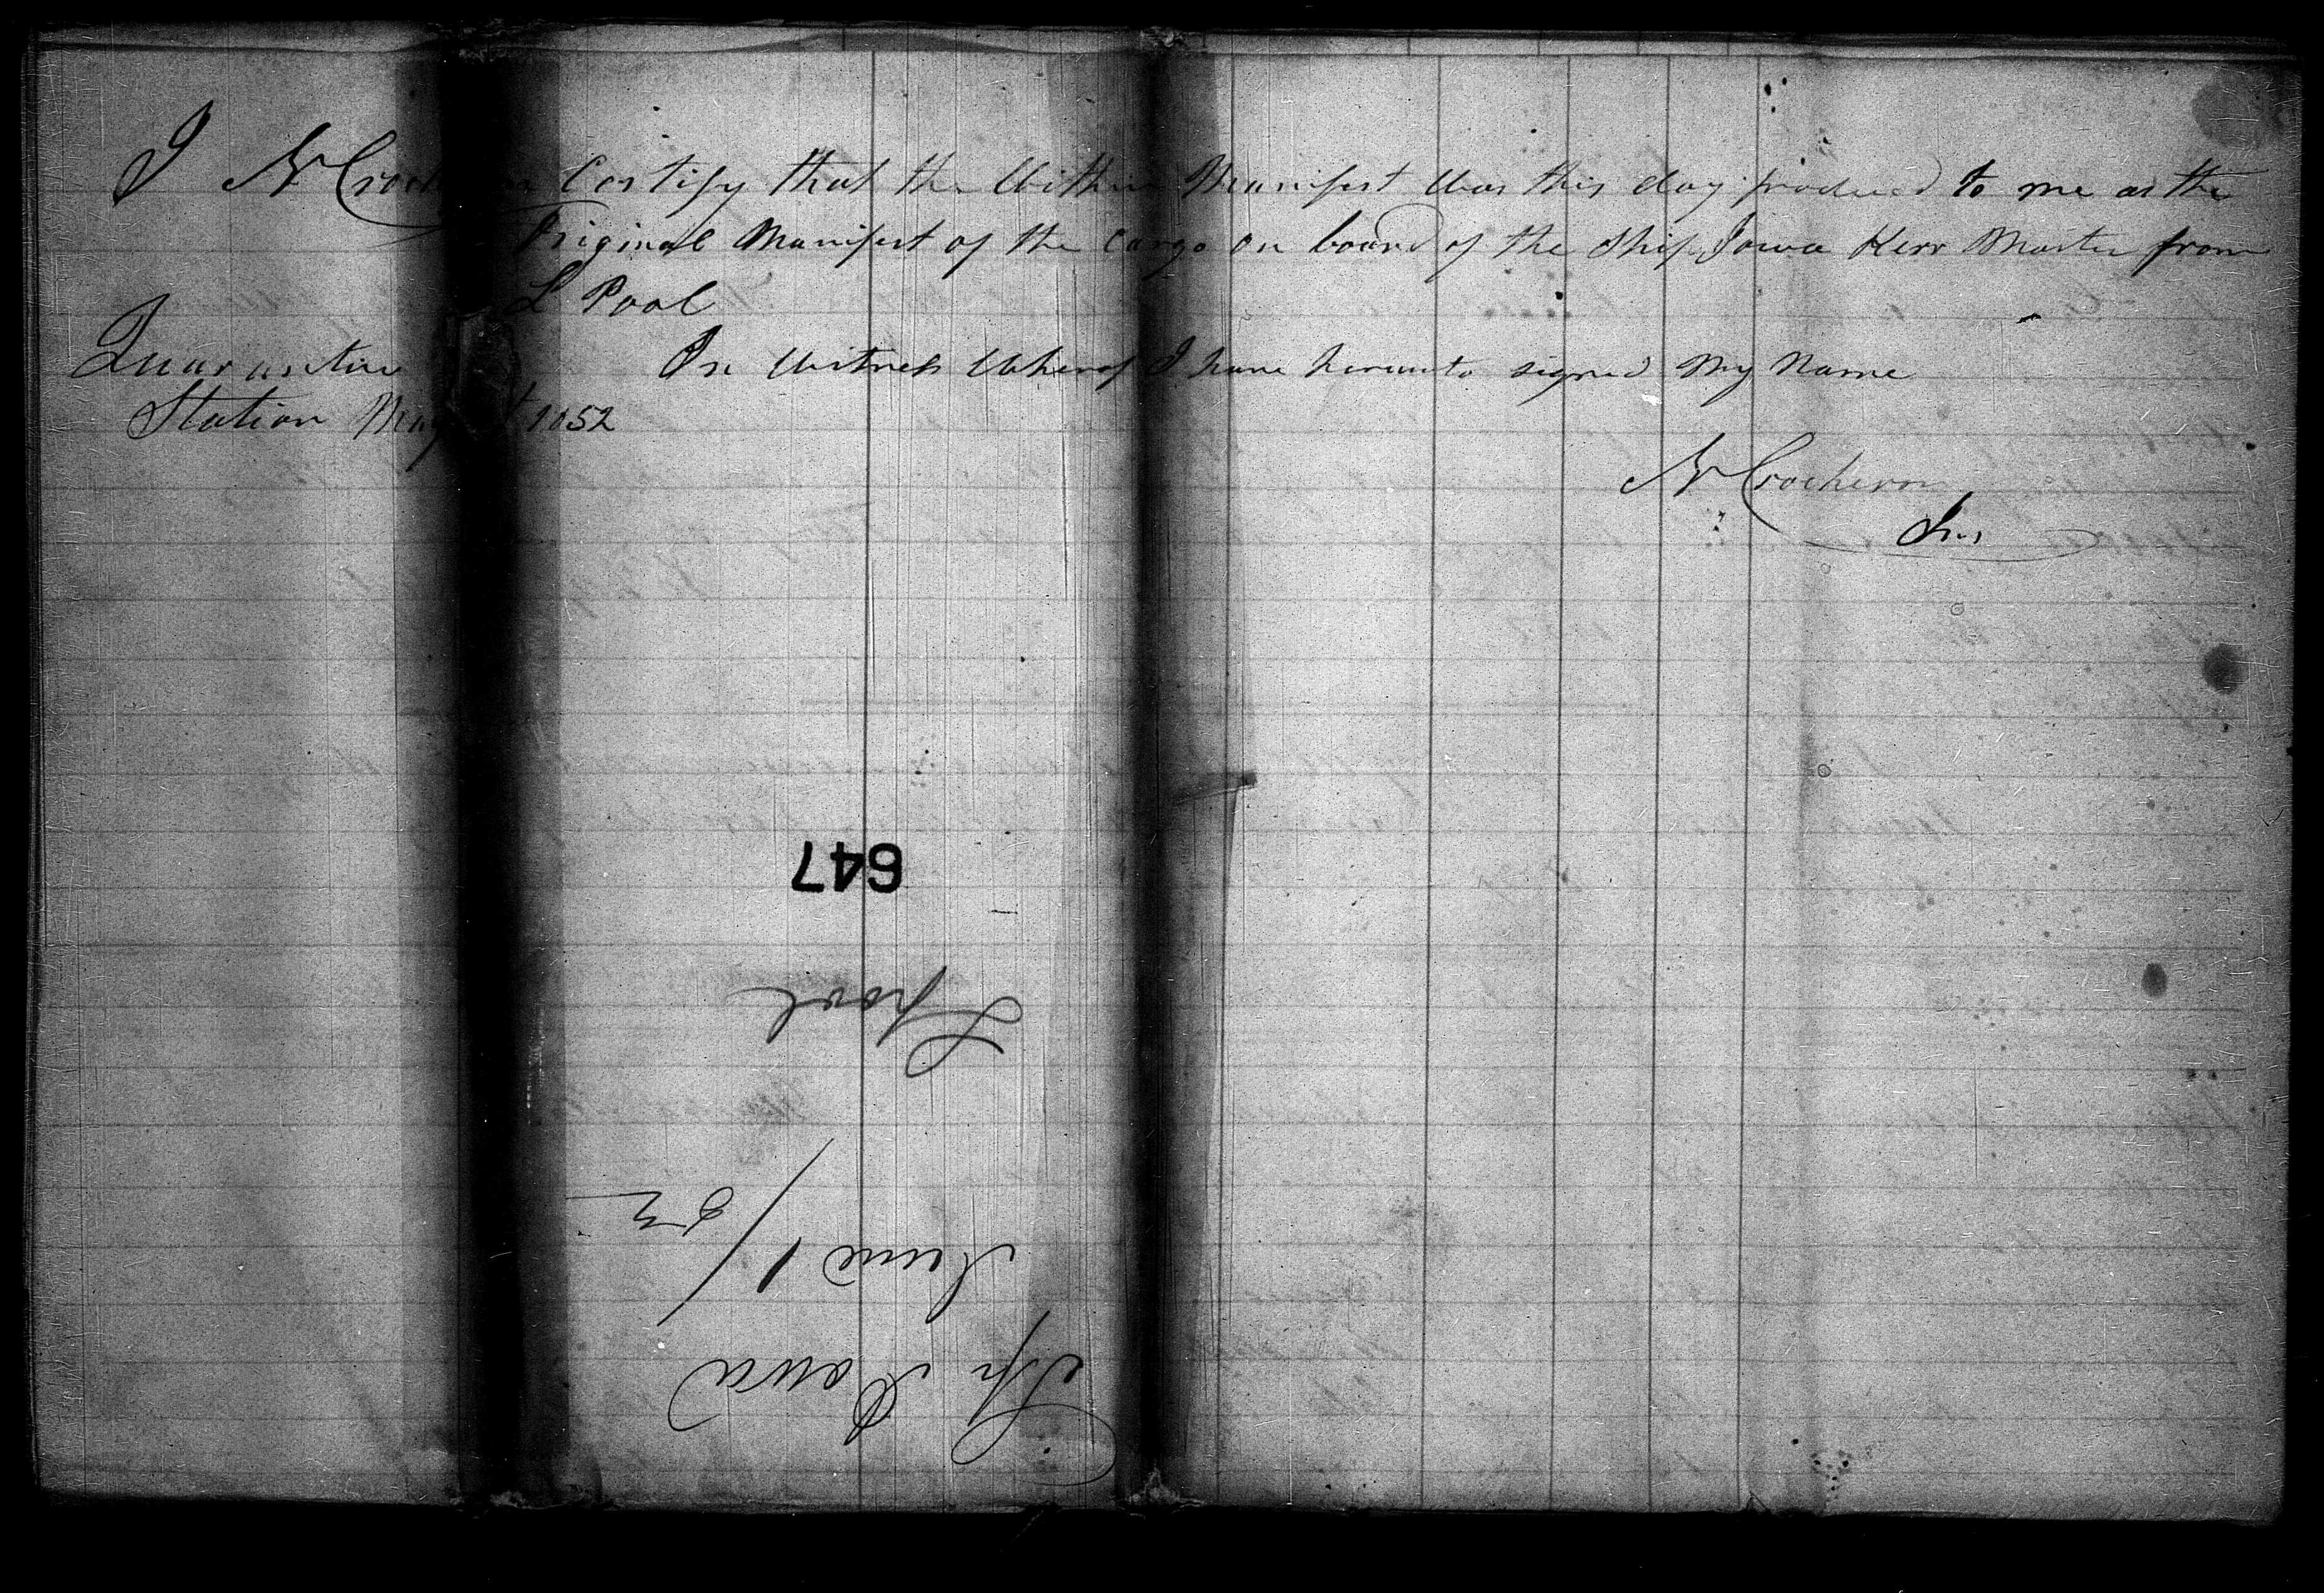 I N Crocheron Certify that the Within Manifest Was this day produced to me as the
Original Manifest of the Cargo on board of the Ship Iowa Kerr Master from
L Pool
In Witness Whereof I have hereunto signed My Name
Quarantine
Station May 1852
N Crocheron
Ins
647
Lpool
Sh Iowa
June 1/52